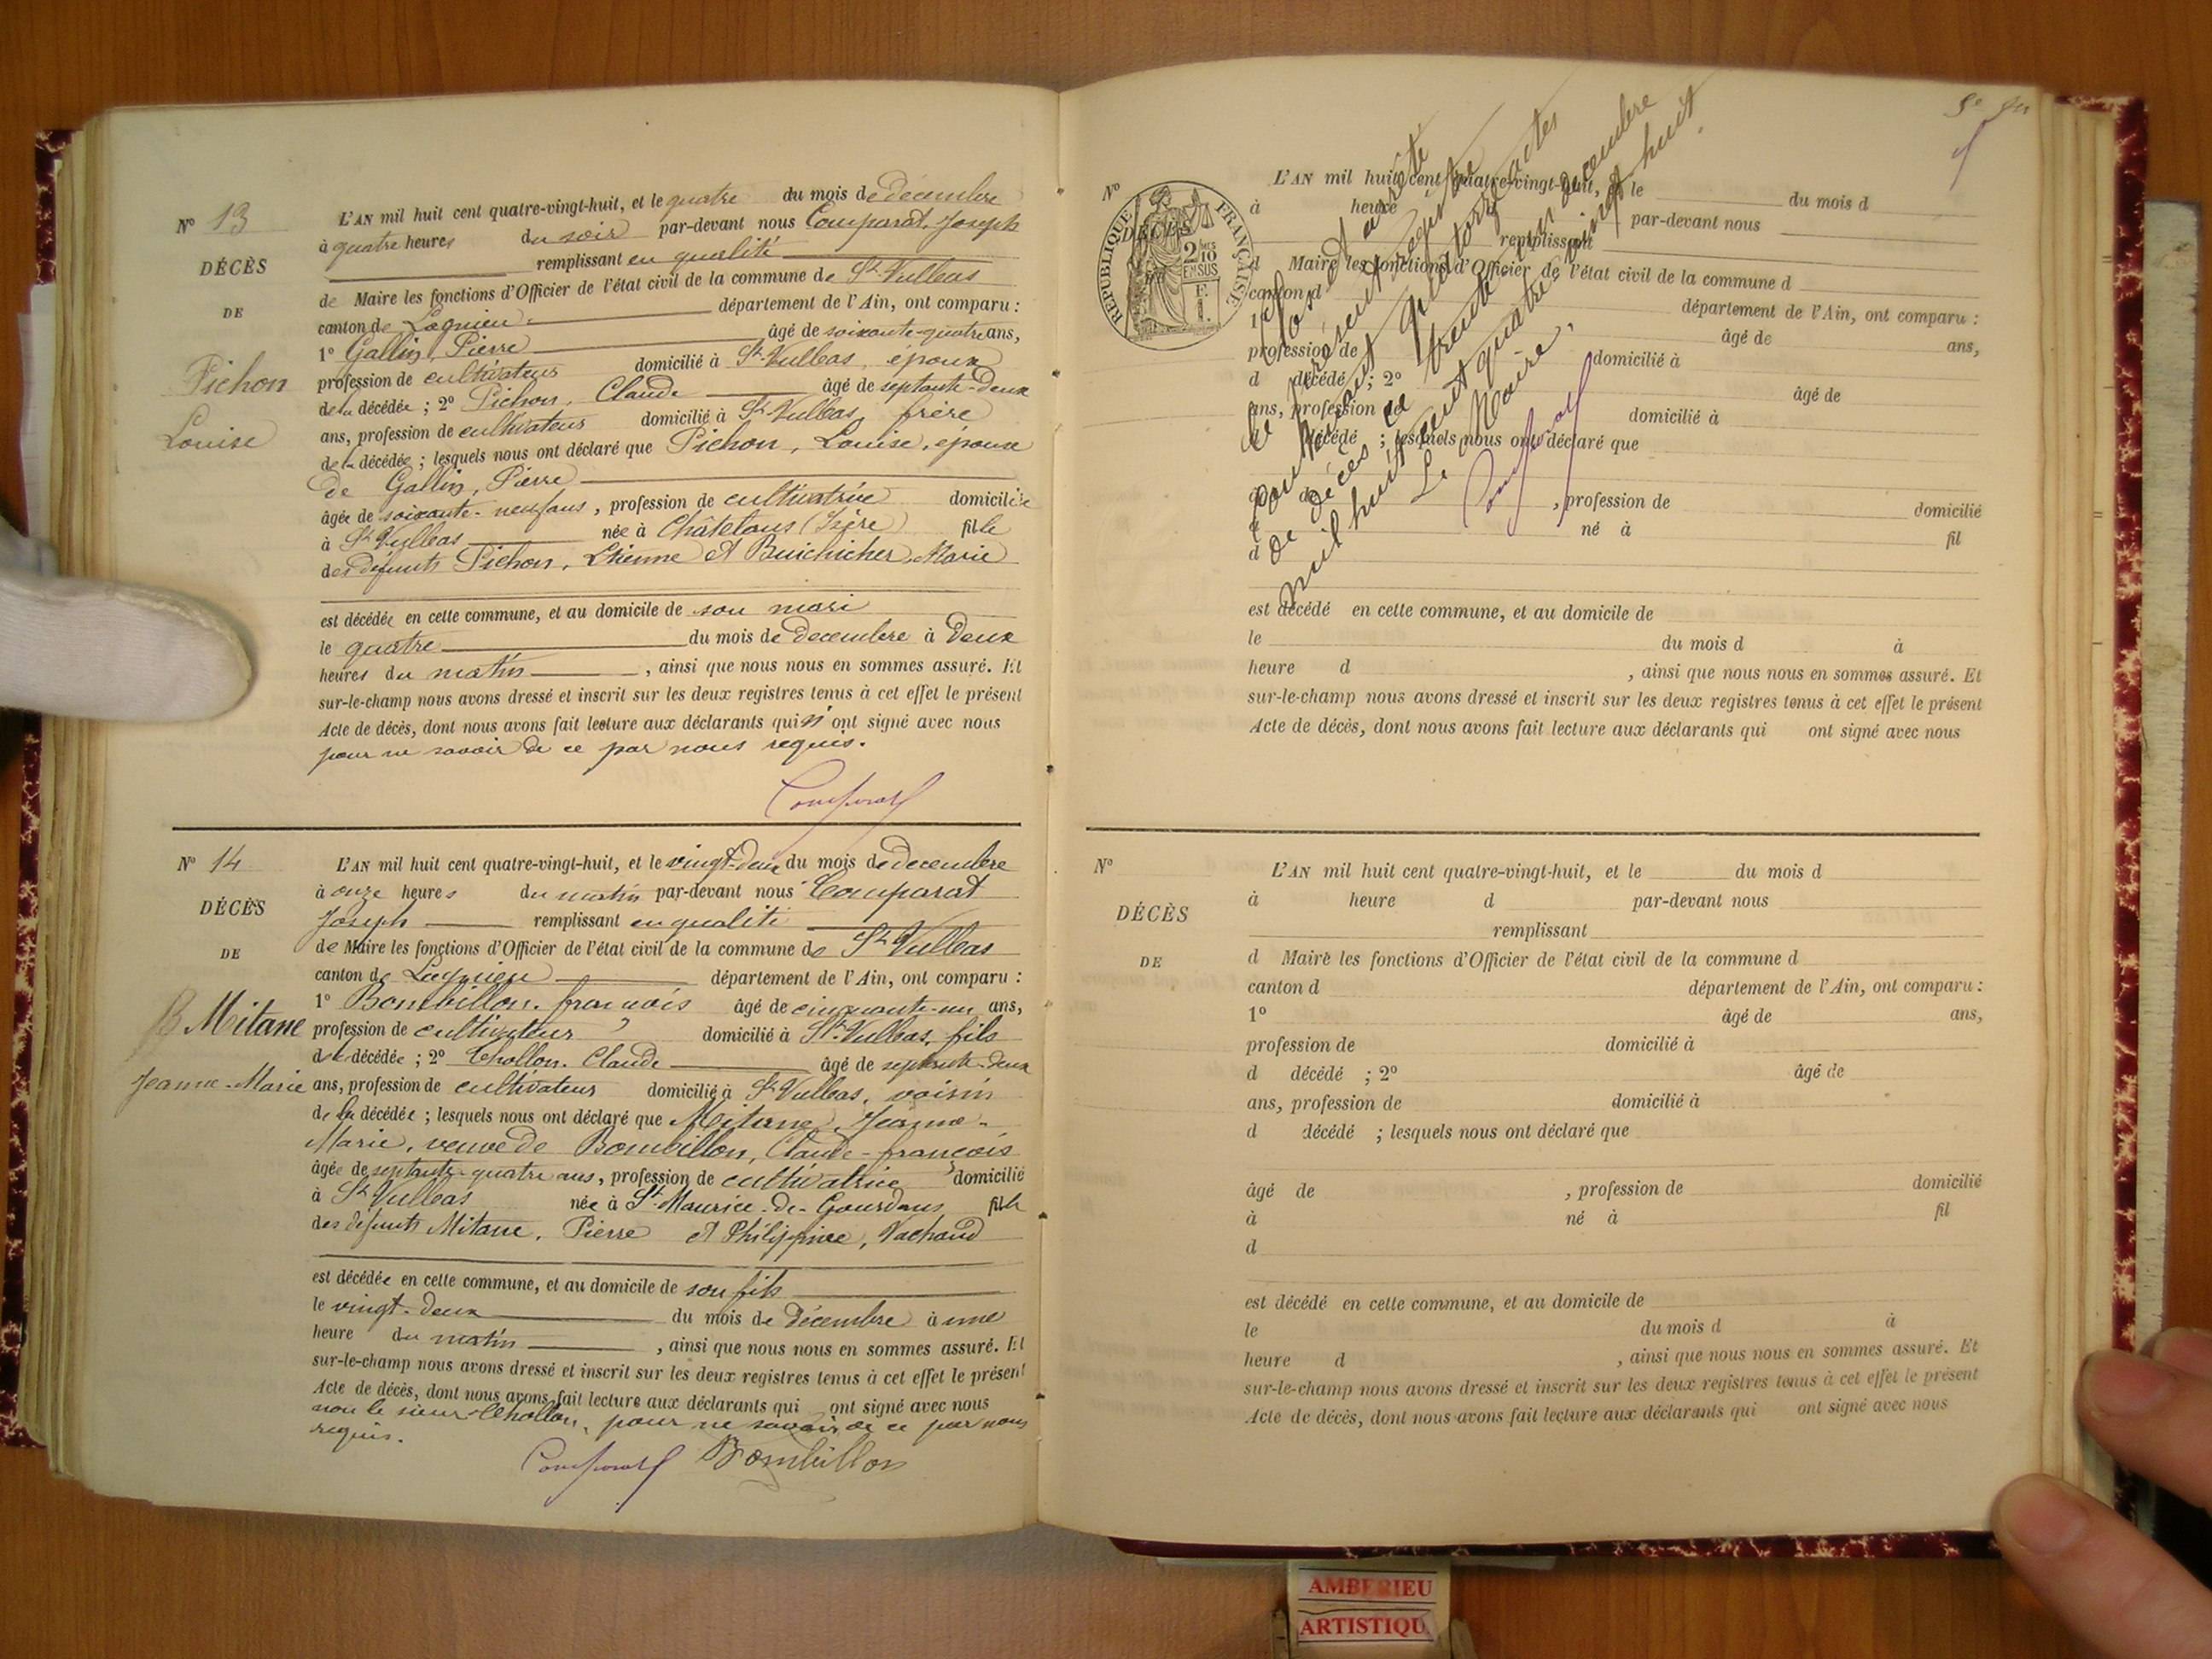 Nº 13
DÉCÈS
DE
Pichon
Louise
L'AN mil huit cent quatre-vingt-huit, et le quatre du mois de décembre
à quatre heures du soir par-devant nous Comparat, Joseph
remplissant en qualité
de Maire les fonctions d'Officier de l'état civil de la commune de St Vulbas
canton de Lagnieu département de l'Ain, ont comparu :
1º Gallin, Pierre âgé de soixante-quatre ans,
profession de cultivateur domicilié à St Vulbas, époux
de la décédée ; 2º Pichon, Claude âgé de septante-deux
ans, profession de cultivateur domicilié à St Vulbas, frère
de la décédée ; lesquels nous ont déclaré que Pichon, Louise, épouse
de Gallin, Pierre
âgée de soixante-neuf ans, profession de cultivatrice domiciliée
à St Vulbas née à Châtelans (Isère) fille
des défunts Pichon, Etienne et Marie
est décédée en cette commune, et au domicile de son mari
le quatre du mois de décembre à deux
heures du matin, ainsi que nous nous en sommes assuré. Et
sur-le-champ nous avons dressé et inscrit sur les deux registres tenus à cet effet le présent
Acte de décès, dont nous avons fait lecture aux déclarants qui n'ont signé avec nous
pour ne savoir de ce par nous requis.
Comparat
Nº 14
DÉCÈS
DE
Mitane
Jeanne-Marie
L'AN mil huit cent quatre-vingt-huit, et le vingt-deux du mois de decembre
à onze heures du matin par-devant nous Comparat
Joseph remplissant en qualité
de Maire les fonctions d'Officier de l'état civil de la commune de St Vulbas
canton de Lagnieu département de l'Ain, ont comparu :
1º Bombillon, françois âgé de cinquante-un ans,
profession de cultivateur domicilié à St Vulbas, fils
de la décédée ; 2º Chollon, Claude âgé de septante-deux
ans, profession de cultivateur domicilié à St Vulbas, voisin
de la décédée ; lesquels nous ont déclaré que Mitane, Jeanne-
Marie, veuve de Bombillon, Claude-françois
âgée de septante-quatre ans, profession de cultivatrice domicilié
à St Vulbas née à St Maurice-de-Gourdans fille
des défunts Mitane, Pierre et Philippine, Vachaud
est décédée en cette commune, et au domicile de son fils
le vingt-deux du mois de décembre à une
heure du matin, ainsi que nous nous en sommes assuré. Et
sur-le-champ nous avons dressé et inscrit sur les deux registres tenus à cet effet le présent
Acte de décès, dont nous avons fait lecture aux déclarants qui ont signé avec nous
non le sieur Chollon, pour ne savoir de ce par nous
requis.
Comparat Bombillon
Nº
RÉPUBLIQUE FRANÇAISE
2/10 EN SUS
F.
1.
DÉCÈS
L'AN mil huit cent quatre-vingt-huit, et le du mois d
à heure par-devant nous
remplissant
d Maire les fonctions d'Officier de l'état civil de la commune d
canton d département de l'Ain, ont comparu :
1º âgé de ans,
profession de domicilié à
d décédé ; 2º âgé de
ans, profession de domicilié à
d décédé ; lesquels nous ont déclaré que
âgé de , profession de domicilié
à né à fil
d
est décédé en cette commune, et au domicile de
le du mois d à
heure d , ainsi que nous nous en sommes assuré. Et
sur-le-champ nous avons dressé et inscrit sur les deux registres tenus à cet effet le présent
Acte de décès, dont nous avons fait lecture aux déclarants qui ont signé avec nous
Clos et arrêté
le présent registre
contenant quatorze actes
de décès ce trente un décembre
mil huit cent quatre-vingt-huit.
Le Maire,
Comparat
Nº
DÉCÈS
DE
L'AN mil huit cent quatre-vingt-huit, et le du mois d
à heure d par-devant nous
remplissant
d Maire les fonctions d'Officier de l'état civil de la commune d
canton d département de l'Ain, ont comparu :
1º âgé de ans,
profession de domicilié à
d décédé ; 2º âgé de
ans, profession de domicilié à
d décédé ; lesquels nous ont déclaré que
âgé de , profession de domicilié
à né à fil
d
est décédé en cette commune, et au domicile de
le du mois d à
heure d , ainsi que nous nous en sommes assuré. Et
sur-le-champ nous avons dressé et inscrit sur les deux registres tenus à cet effet le présent
Acte de décès, dont nous avons fait lecture aux déclarants qui ont signé avec nous
AMBERIEU
ARTISTIQU